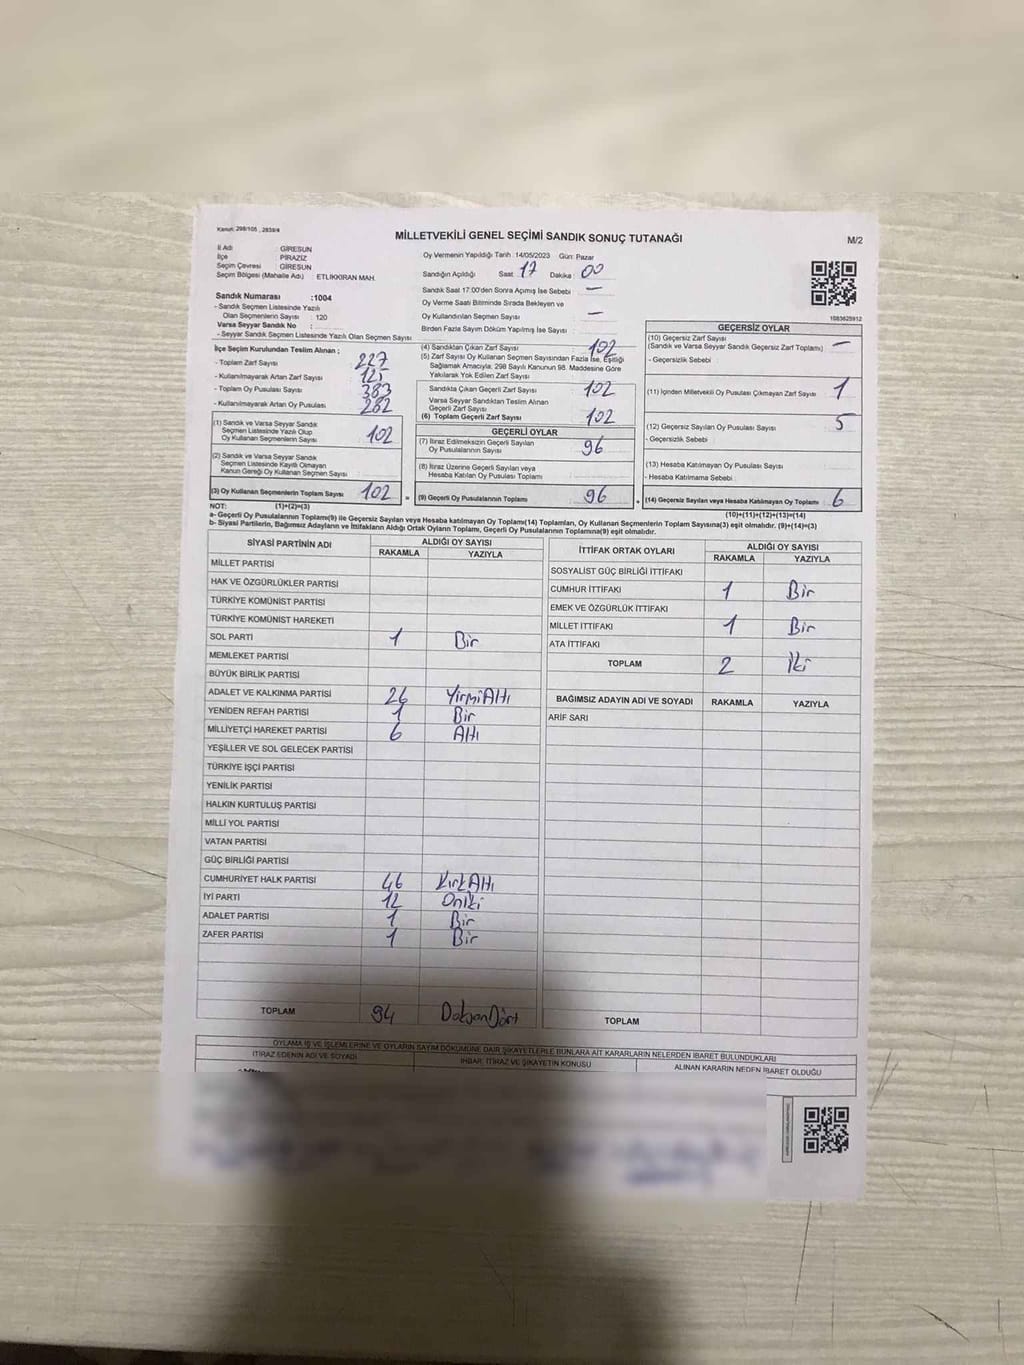 Kanun: 298/105 , 2839/4
MİLLETVEKİLİ GENEL SEÇİMİ SANDIK SONUÇ TUTANAĞI
M/2
İl Adı : GİRESUN
İlçe : PİRAZİZ
Seçim Çevresi : GİRESUN
Seçim Bölgesi (Mahalle Adı) : ETLİKKIRAN MAH.
Sandık Numarası :1004
- Sandık Seçmen Listesinde Yazılı
Olan Seçmenlerin Sayısı : 120
Varsa Seyyar Sandık No :
- Seyyar Sandık Seçmen Listesinde Yazılı Olan Seçmen Sayısı :
Oy Vermenin Yapıldığı Tarih :14/05/2023 Gün: Pazar
Sandığın Açıldığı Saat : 17 Dakika : 00
Sandık Saat 17:00'den Sonra Açımış İse Sebebi : –
Oy Verme Saati Bitiminde Sırada Bekleyen ve
Oy Kullandırılan Seçmen Sayısı : –
Birden Fazla Sayım Döküm Yapılmış İse Sayısı :
1083625912
İlçe Seçim Kurulundan Teslim Alınan ;
- Toplam Zarf Sayısı : 227
- Kullanılmayarak Artan Zarf Sayısı : 125
- Toplam Oy Pusulası Sayısı : 383
- Kullanılmayarak Artan Oy Pusulası : 282
(1) Sandık ve Varsa Seyyar Sandık
Seçmen Listesinde Yazılı Olup
Oy Kullanan Seçmenlerin Sayısı : 102
(2) Sandık ve Varsa Seyyar Sandık
Seçmen Listesinde Kayıtlı Olmayan
Kanun Gereği Oy Kullanan Seçmen Sayısı :
(3) Oy Kullanan Seçmenlerin Toplam Sayısı : 102 =
(1)+(2)=(3)
(4) Sandıktan Çıkan Zarf Sayısı : 102
(5) Zarf Sayısı Oy Kullanan Seçmen Sayısından Fazla İse, Eşitliği
Sağlamak Amacıyla, 298 Sayılı Kanunun 98. Maddesine Göre
Yakılarak Yok Edilen Zarf Sayısı :
Sandıkta Çıkan Geçerli Zarf Sayısı : 102
Varsa Seyyar Sandıktan Teslim Alınan
Geçerli Zarf Sayısı :
(6) Toplam Geçerli Zarf Sayısı : 102
GEÇERLİ OYLAR
(7) İtiraz Edilmeksizin Geçerli Sayılan
Oy Pusulalarının Sayısı : 96
(8) İtiraz Üzerine Geçerli Sayılan veya
Hesaba Katılan Oy Pusulası Toplamı :
(9) Geçerli Oy Pusulalarının Toplamı : 96 +
GEÇERSİZ OYLAR
(10) Geçersiz Zarf Sayısı
(Sandık ve Varsa Seyyar Sandık Geçersiz Zarf Toplamı) : –
- Geçersizlik Sebebi :
(11) İçinden Milletvekili Oy Pusulası Çıkmayan Zarf Sayısı : 1
(12) Geçersiz Sayılan Oy Pusulası Sayısı : 5
- Geçersizlik Sebebi :
(13) Hesaba Katılmayan Oy Pusulası Sayısı :
- Hesaba Katılmama Sebebi :
(14) Geçersiz Sayılan veya Hesaba Katılmayan Oy Toplamı : 6
(10)+(11)+(12)+(13)=(14)
NOT:
a- Geçerli Oy Pusulalarının Toplamı(9) ile Geçersiz Sayılan veya Hesaba katılmayan Oy Toplamı(14) Toplamları, Oy Kullanan Seçmenlerin Toplam Sayısına(3) eşit olmalıdır. (9)+(14)=(3)
b- Siyasi Partilerin, Bağımsız Adayların ve İttifakların Aldığı Ortak Oyların Toplamı, Geçerli Oy Pusulalarının Toplamına(9) eşit olmalıdır.
SİYASİ PARTİNİN ADI ALDIĞI OY SAYISI
RAKAMLA YAZIYLA
MİLLET PARTİSİ
HAK VE ÖZGÜRLÜKLER PARTİSİ
TÜRKİYE KOMÜNİST PARTİSİ
TÜRKİYE KOMÜNİST HAREKETİ
SOL PARTİ 1 Bir
MEMLEKET PARTİSİ
BÜYÜK BİRLİK PARTİSİ
ADALET VE KALKINMA PARTİSİ 26 YirmiAltı
YENİDEN REFAH PARTİSİ 1 Bir
MİLLİYETÇİ HAREKET PARTİSİ 6 Altı
YEŞİLLER VE SOL GELECEK PARTİSİ
TÜRKİYE İŞÇİ PARTİSİ
YENİLİK PARTİSİ
HALKIN KURTULUŞ PARTİSİ
MİLLİ YOL PARTİSİ
VATAN PARTİSİ
GÜÇ BİRLİĞİ PARTİSİ
CUMHURİYET HALK PARTİSİ 46 KırkAltı
İYİ PARTİ 12 Oniki
ADALET PARTİSİ 1 Bir
ZAFER PARTİSİ 1 Bir
TOPLAM 94 DoksanDört
İTTİFAK ORTAK OYLARI ALDIĞI OY SAYISI
RAKAMLA YAZIYLA
SOSYALİST GÜÇ BİRLİĞİ İTTİFAKI
CUMHUR İTTİFAKI 1 Bir
EMEK VE ÖZGÜRLÜK İTTİFAKI
MİLLET İTTİFAKI 1 Bir
ATA İTTİFAKI
TOPLAM 2 İki
BAĞIMSIZ ADAYIN ADI VE SOYADI RAKAMLA YAZIYLA
ARİF SARI
TOPLAM
OYLAMA İŞ VE İŞLEMLERİNE VE OYLARIN SAYIM DÖKÜMÜNE DAİR ŞİKAYETLERLE BUNLARA AİT KARARLARIN NELERDEN İBARET BULUNDUKLARI
İTİRAZ EDENİN ADI VE SOYADI İHBAR, İTİRAZ VE ŞİKAYETİN KONUSU ALINAN KARARIN NEDEN İBARET OLDUĞU